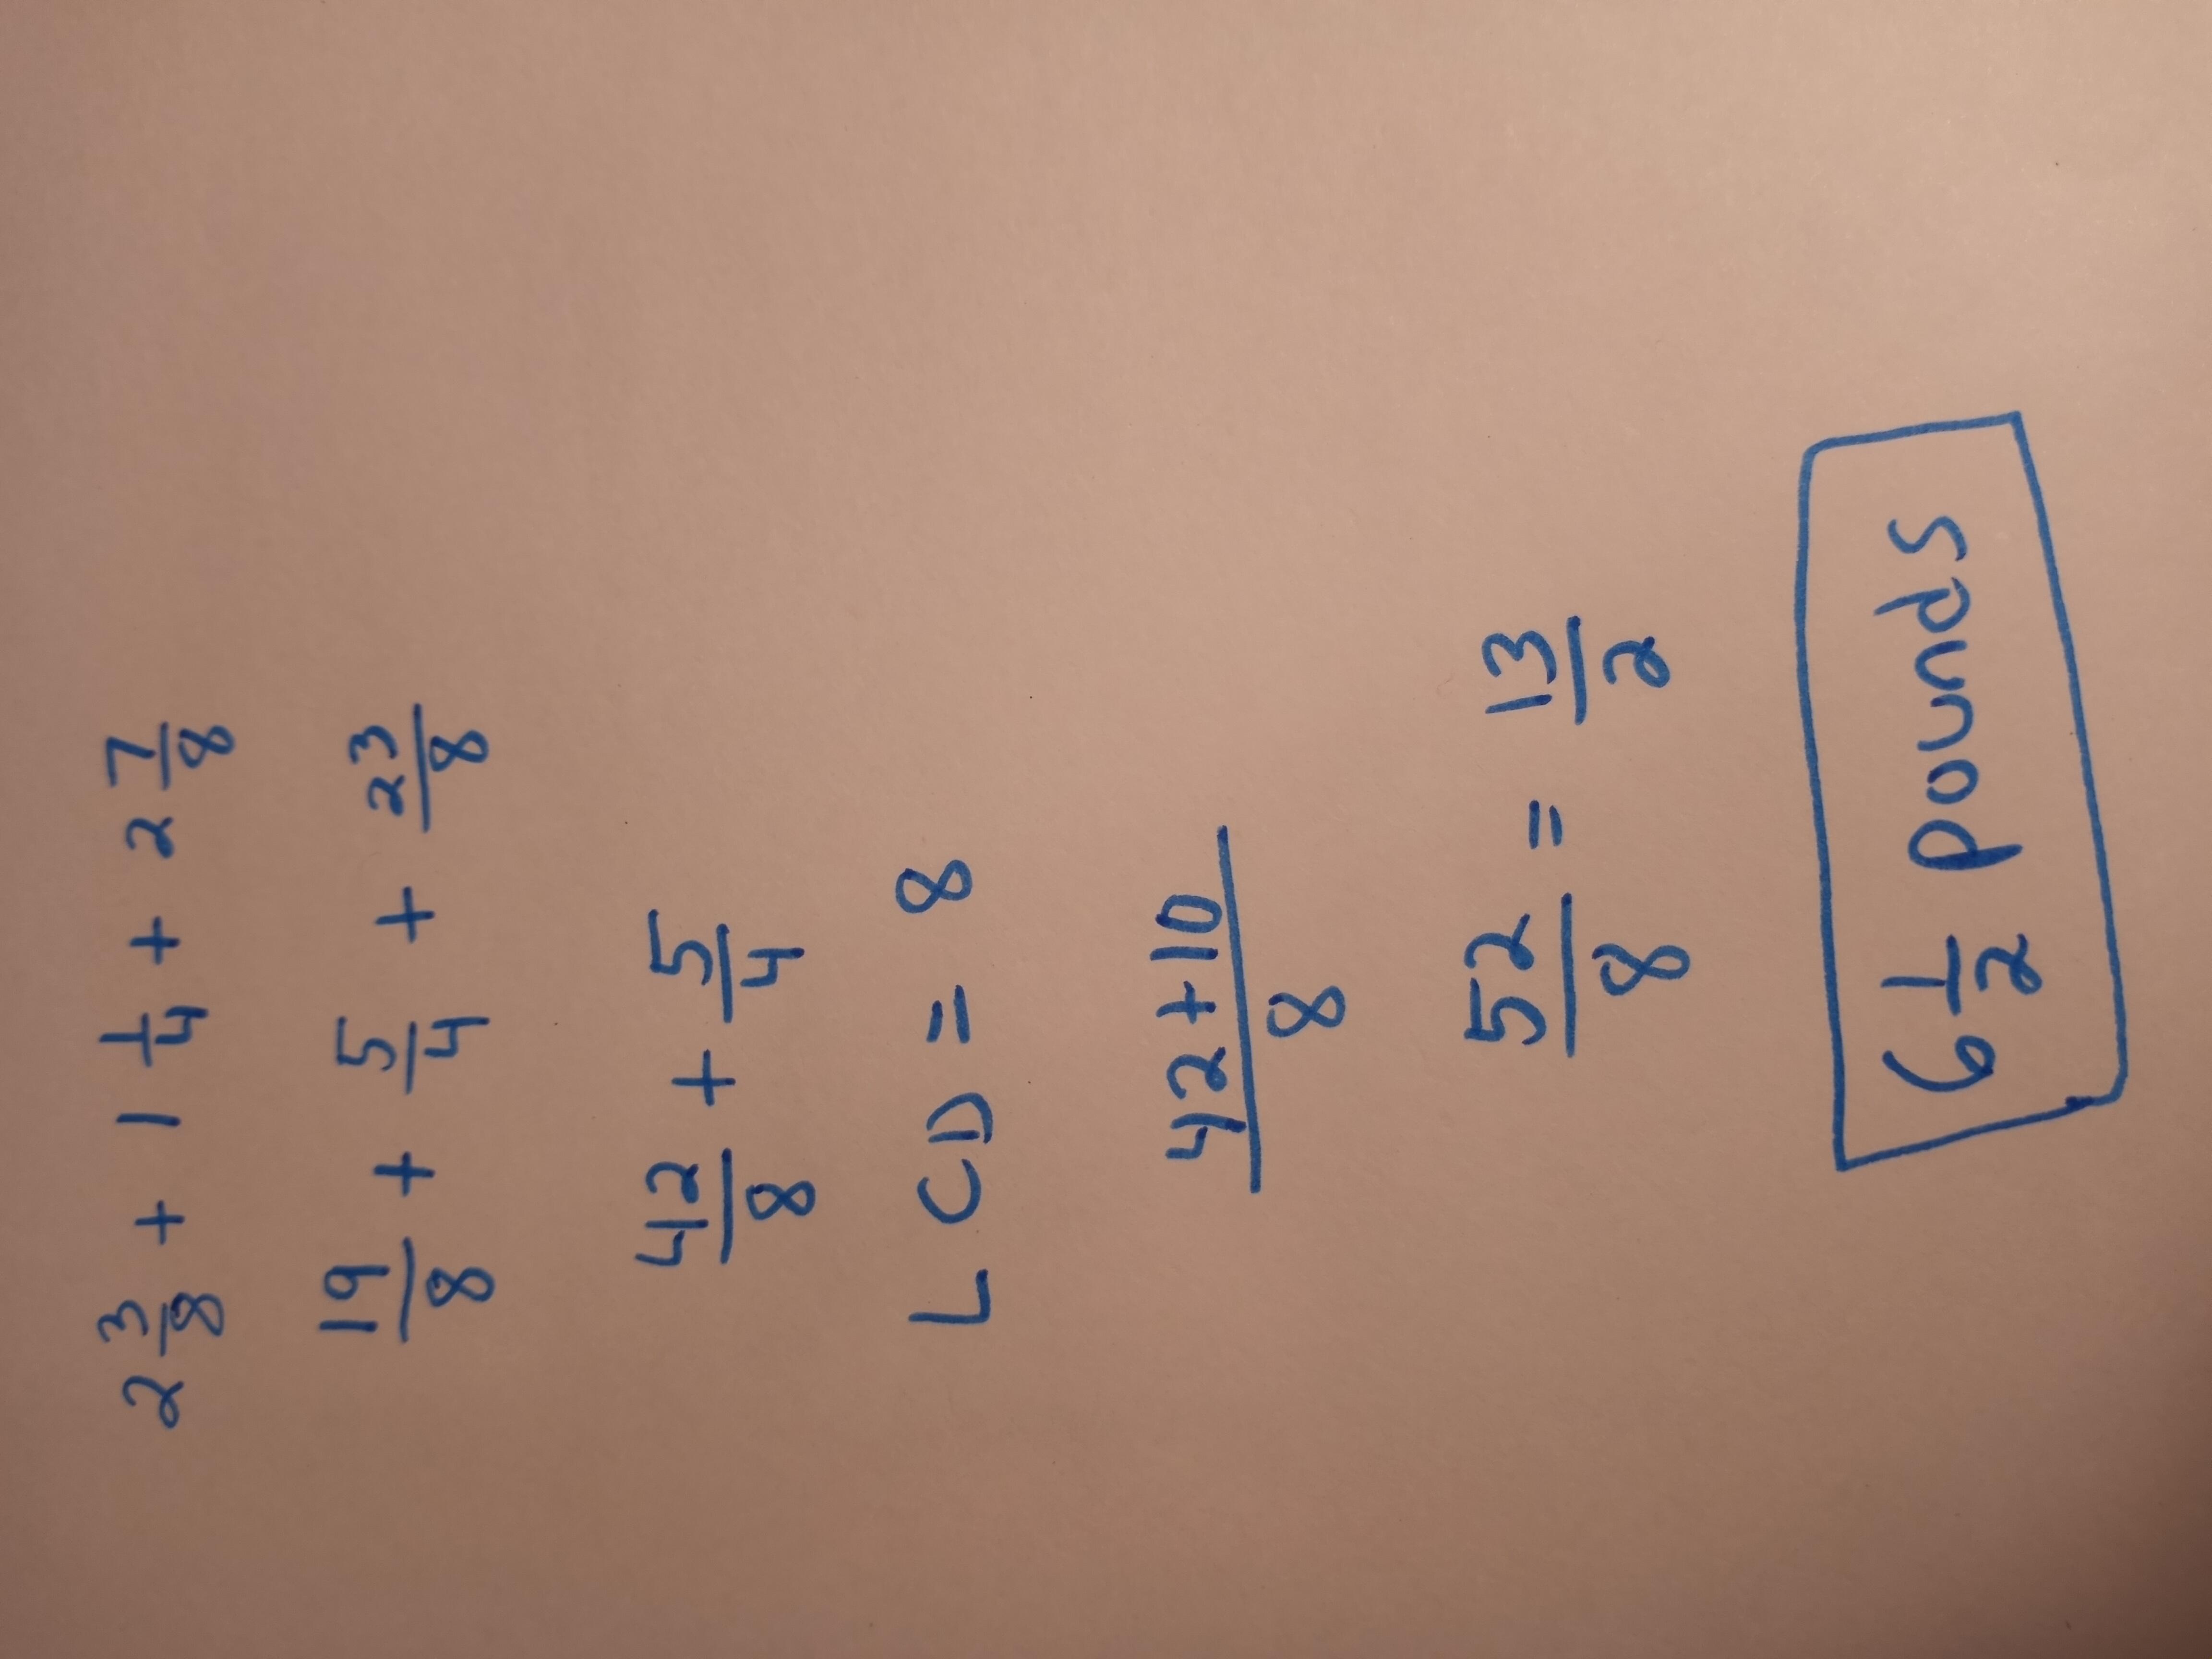 2 3/8 + 1 1/4 + 2 7/8
19/8 + 5/4 + 23/8
42/8 + 5/4
LCD = 8
42+10/8
52/8 = 13/2
6 1/2 pounds